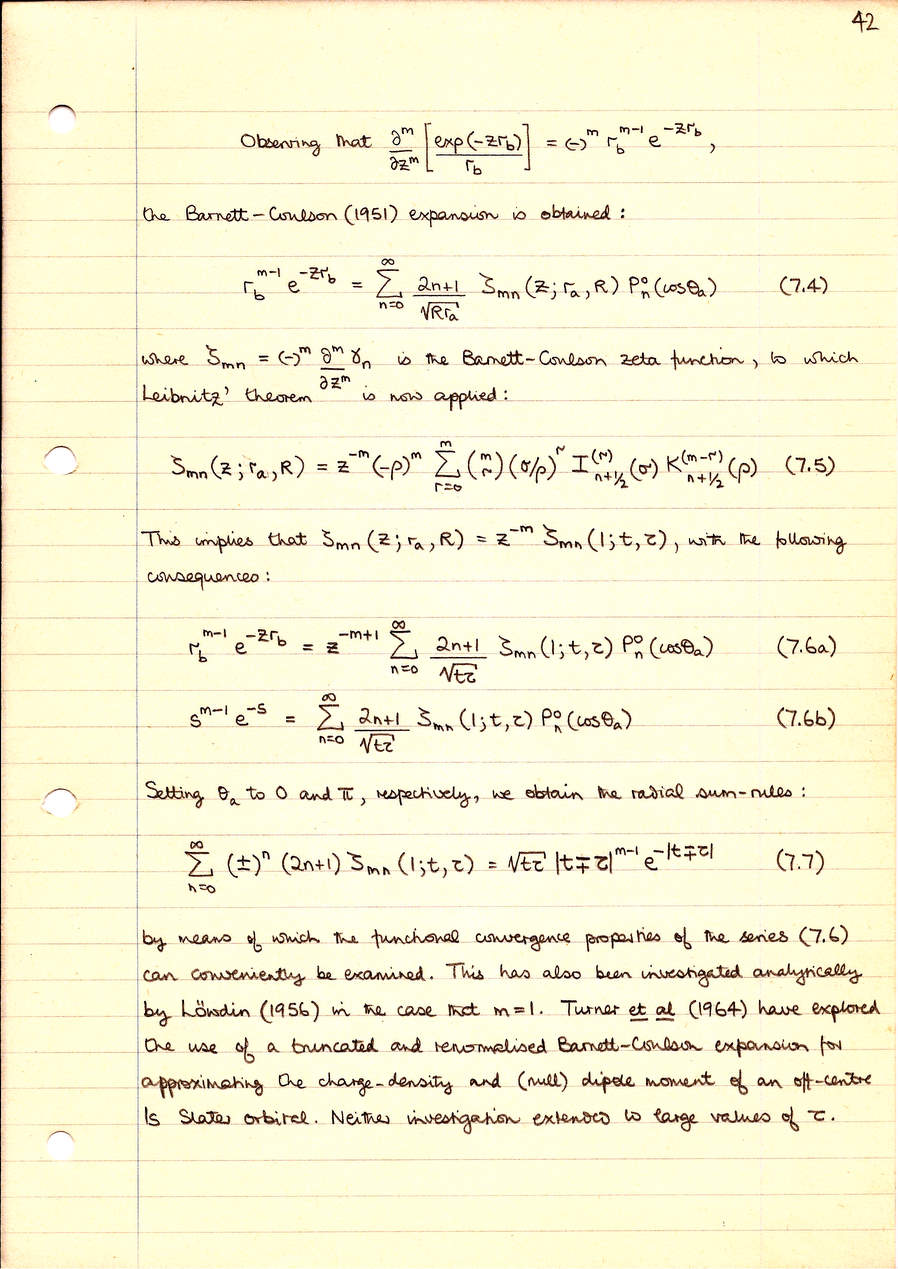 42
Observing that ∂ᵐ/∂zᵐ [exp(-zr_b)/r_b] = (-)ᵐ r_b^{m-1} e^{-zr_b},
the Barnett-Coulson (1951) expansion is obtained :
r_b^{m-1} e^{-zr_b} = ∑_{n=0}^{∞} (2n+1)/√(Rr_a) ζ_{mn}(z; r_a, R) P_n^o(cosθ_a) (7.4)
where ζ_{mn} = (-)ᵐ ∂ᵐ/∂zᵐ γ_n is the Barnett-Coulson zeta function, to which
Leibnitz' theorem is now applied :
ζ_{mn}(z; r_a, R) = z^{-m} (-ρ)^m ∑_{r=0}^{m} (m r) (σ/ρ)^r I_{n+1/2}^{(r)}(σ) K_{n+1/2}^{(m-r)}(ρ) (7.5)
This implies that ζ_{mn}(z; r_a, R) = z^{-m} ζ_{mn}(1; t, τ), with the following
consequences :
r_b^{m-1} e^{-zr_b} = z^{-m+1} ∑_{n=0}^{∞} (2n+1)/√(tτ) ζ_{mn}(1; t, τ) P_n^o(cosθ_a) (7.6a)
s^{m-1} e^{-s} = ∑_{n=0}^{∞} (2n+1)/√(tτ) ζ_{mn}(1; t, τ) P_n^o(cosθ_a) (7.6b)
Setting θ_a to 0 and π, respectively, we obtain the radial sum-rules :
∑_{n=0}^{∞} (±)^n (2n+1) ζ_{mn}(1; t, τ) = √(tτ) |t∓τ|^{m-1} e^{-|t∓τ|} (7.7)
by means of which the functional convergence properties of the series (7.6)
can conveniently be examined. This has also been investigated analytically
by Löwdin (1956) in the case that m=1. Turner et al (1964) have explored
the use of a truncated and renormalised Barnett-Coulson expansion for
approximating the charge-density and (null) dipole moment of an off-centre
1s Slater orbital. Neither investigation extended to large values of τ.